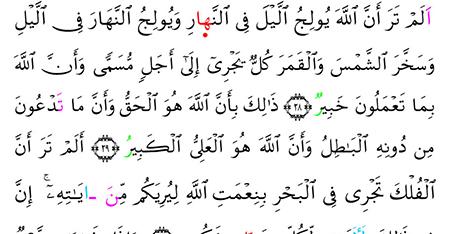 اَلَمْ تَرَ أَنَّ اَللَّهَ يُولِجُ اُلَّيْلَ فِى اِلنَّهارِ وَيُولِجُ اُلنَّهَارَ فِى اِلَّيْلِ
وَسَخَّرَ اَلشَّمْسَ وَالْقَمَرَ كُلٌّ يَجْرِىٓ إِلَىٰٓ أَجَلٍ مُّسَمًّى وَأَنَّ اَللَّهَ
بِمَا تَعْمَلُونَ خَبِيرٌ ٢٨ ذَٰلِكَ بِأَنَّ اَللَّهَ هُوَ اَلْحَقُّ وَأَنَّ مَا تَدْعُونَ
مِن دُونِهِ اِلْبَٰطِلُ وَأَنَّ اَللَّهَ هُوَ اَلْعَلِىُّ اُلْكَبِيرُ ٢٩ أَلَمْ تَرَ أَنَّ
اَلْفُلْكَ تَجْرِى فِى اِلْبَحْرِ بِنِعْمَتِ اِللَّهِ لِيُرِيَكُم مِّنَ ـايَٰتِهِۦٓ إِنَّ